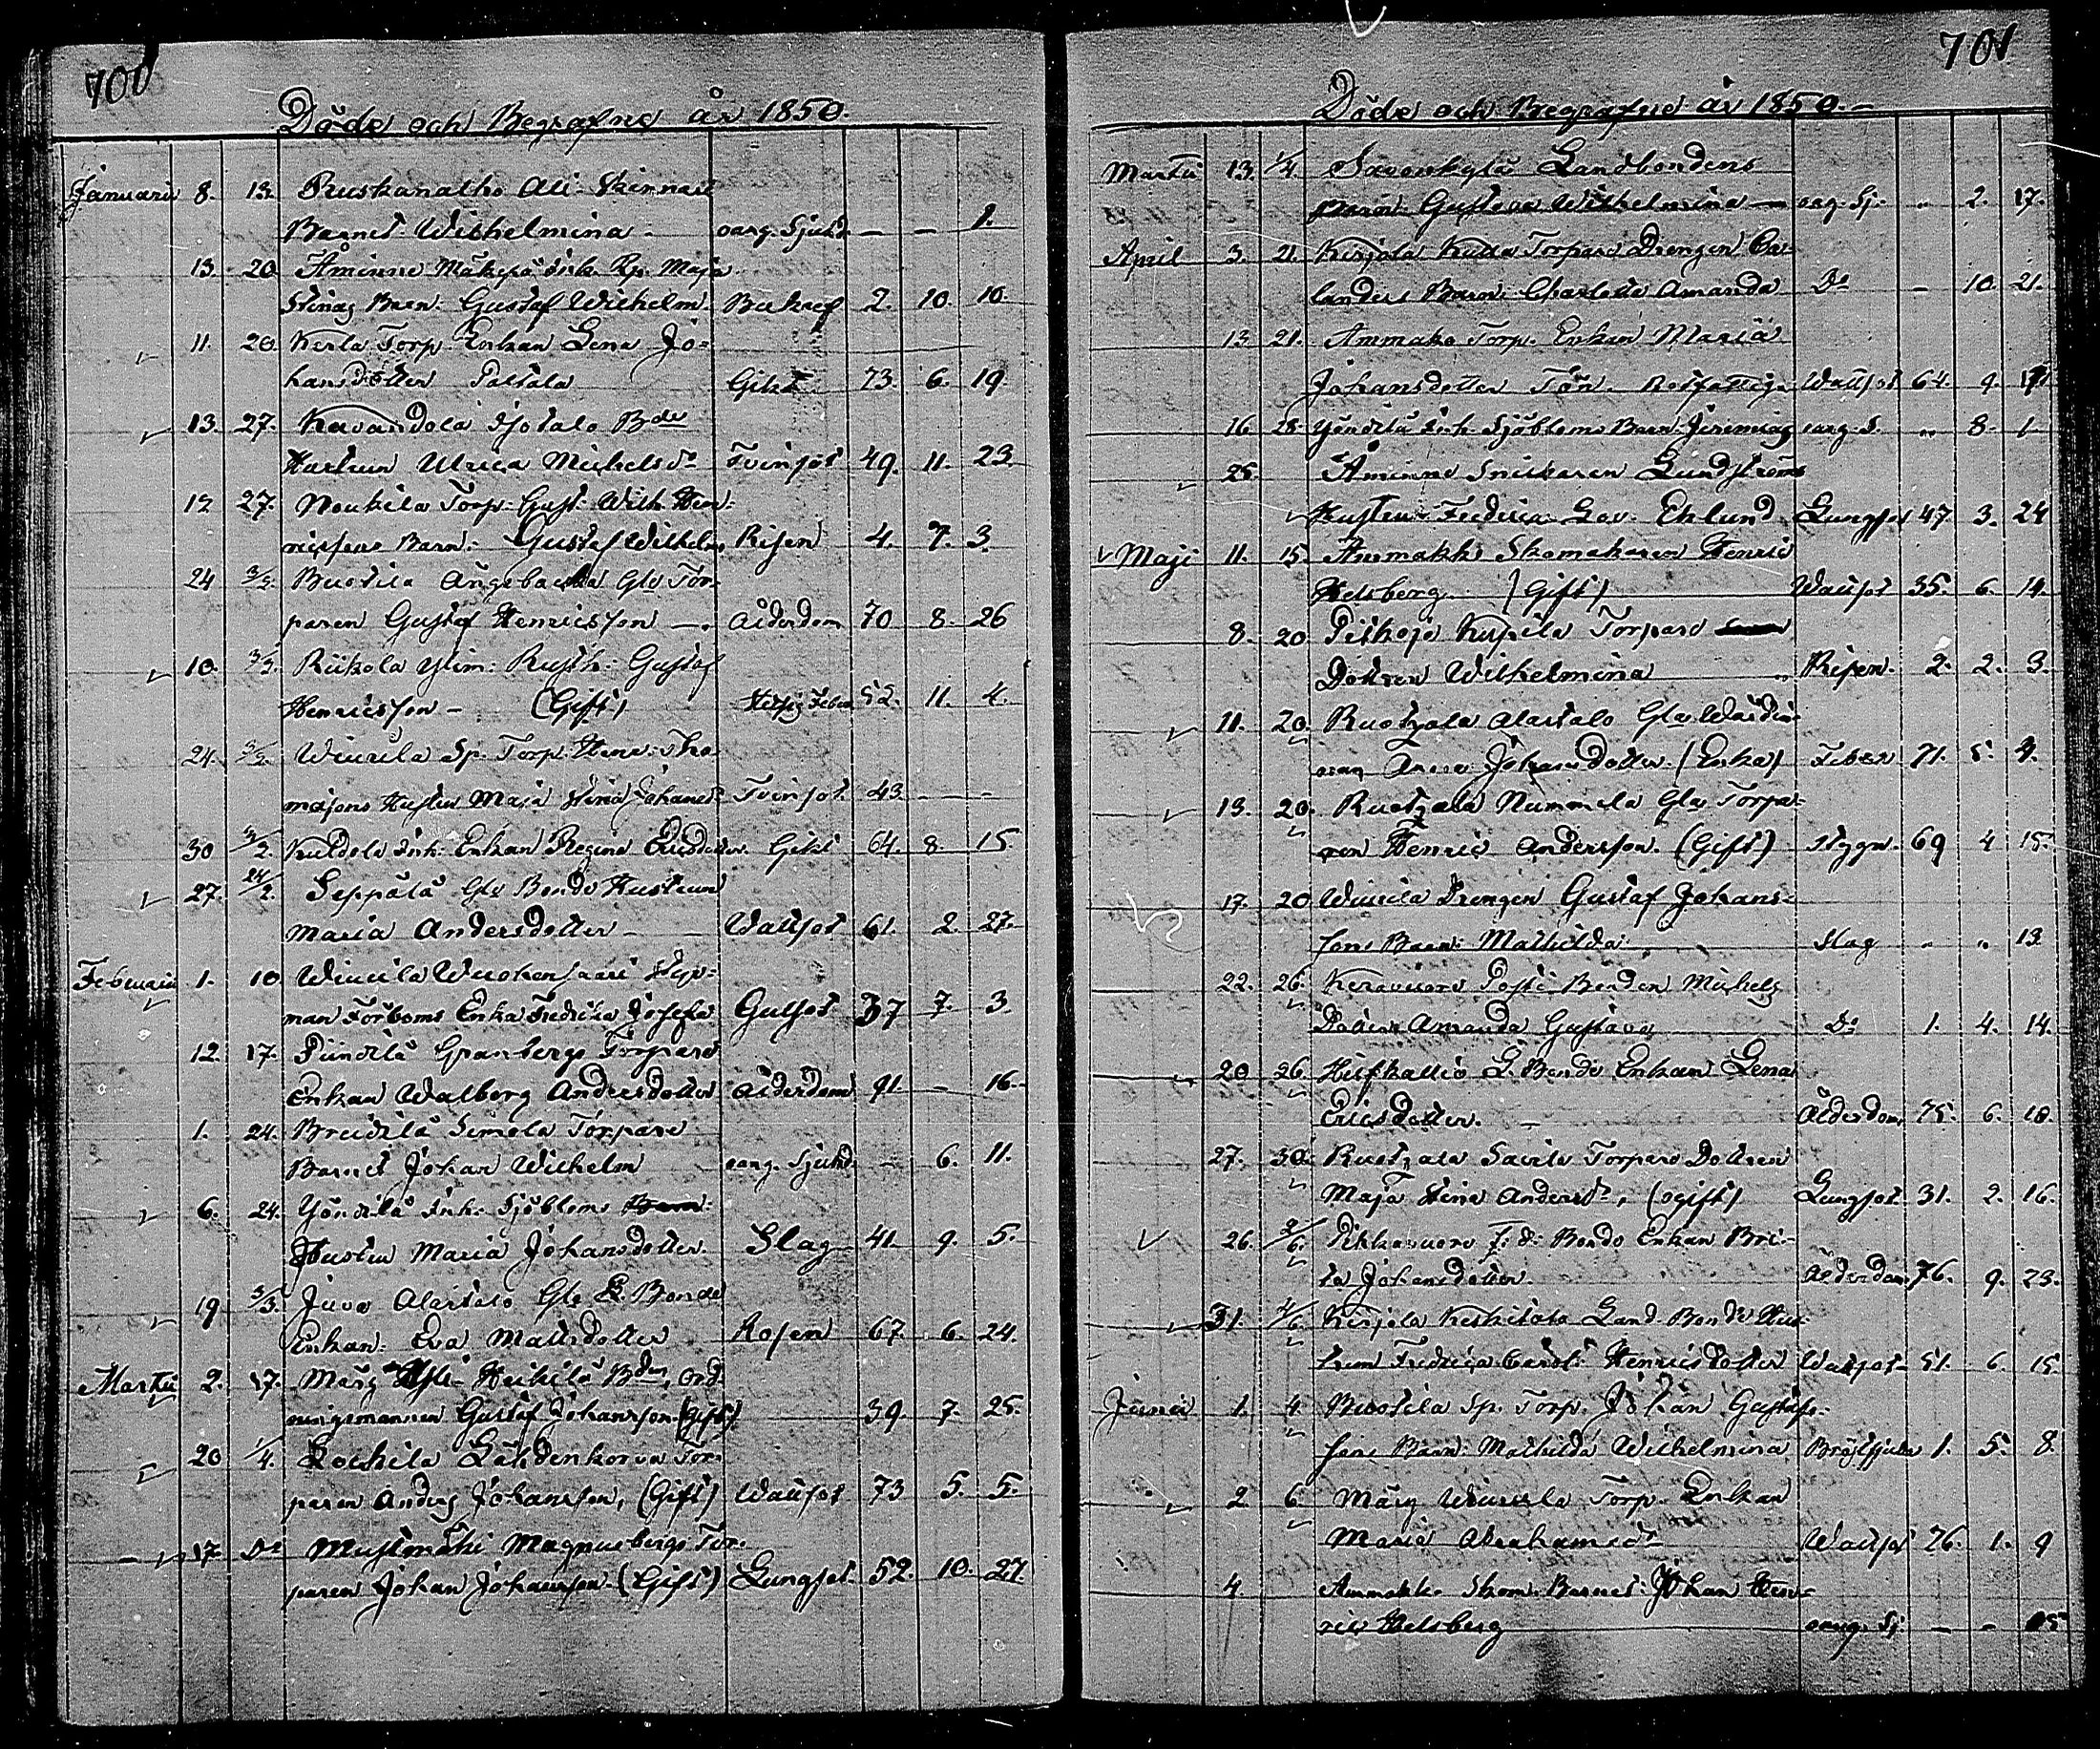 700
Döde och Begrafne år 1850.
Januarii 8. 13. Ruskanatho Ali-
Barnet Wilhelmina oang. Sjukd. — — 1.
13. 20. Åminne Mäkepä Inh. Maja
Stinas Barn: Gustaf Wilhelm 2. 10. 10.
11. 20. Kerla Torp. Enkan Lena Jo=
hansdotter Gikt 73. 6. 19.
13. 27. Bde
Hustrun Ulrica Michelsdr Tvinsot 49. 11. 23.
12 27. Noukila Torp: Gust: Wilh: Hen=
ricssons Barn: Gustaf Wilhelm Risen 4. 7. 3.
24 3/2. Ruotila Ångabacka Gle Tor=
paren Gustaf Henricsson — Ålderdom 70 8. 26
10. 3/2. Riikola Ylim: Rusth: Gustaf
Henricsson — (Gift) 52. 11. 4.
24. 3/2. Wiurila Sp. Torp. Henr: Tho=
masons Hustru Maja Stina Johansdr Tvinsot. 43. — —
30 3/2. Kuldola Inh: Enkan Regina Ericsdotter Gikt 64. 8. 15.
27. 24/2. Seppälä Gle Bonde Hustrun
Maria Andersdotter — Wattsot 61. 2. 27.
Februarii 1. 10. Wiurila Wuohensaari
man Förboms Enka Fredrica Josefa Gulsot 37 7. 3.
12. 17. Pündilä Granbergs Torpare
Enkan Walborg Andersdotter Ålderdom 91. — 16.
1. 24. Breidilä Simola Torpare
Barnet Johan Wilhelm oang. Sjukd. — 6. 11.
6. 24. Yöndilä Inh: Sjöbloms
Hustru Maria Johansdotter. Slag 41. 9. 5.
19. 3/3. Juva Alastalo Gle R. Bonde
Enkan: Eva Mattsdotter Rosen 67. 6. 24.
Martii 2. 17. Märy Heikilä Bden, ord=
ningsmannen Gustaf Johansson (Gift) 39. 7. 25.
20 1/4. Loukila Lähdenkorva Tor=
paren Anders Johansson, (Gift) Wattsot 73 5. 5.
17. Do Mustmäki Magnusbergs Tor=
paren Johan Johansson. (Gift) Lungsot. 52. 10. 27.
701
Döde och Begrafne år 1850.
Martii 13. 1/4. Savonkylä Landbondens
Barn Gustava Wilhelmina — oang. Sj. „ 2. 17.
April 3. 21. Kirjola Torpare Drengen
landers Barn: Charlotta Amanda Do — 10. 21.
13. 21. Ammako Torp. Enkan Maria
Johansdotter Wattsot 64. 9.
16. 28. Yöndilä Inh: Sjöbloms Barn: Jeremias oang. S. „ 8. 1
25. Åminne Snickaren Lundströms
Hustru Fredrica Lov. Eklund Lungsot 47 3. 24
Maji 11. 15. Ammakko Skomakaren Henric
Helsberg. (Gift) Wattsot 35. 6. 14.
8. 20. Piskoja Torpare
Dottren Wilhelmina Risen. 2. 2. 3.
11. 20. Ruotzala Alastalo Gla
Johansdotter. (Enka) Feber 71. 5. 4.
13. 20. Ruotzala Nummela Gle Torpa=
ren Henric Andersson. (Gift) Stygn. 69 4 15.
17. 20. Wiurila Drengen Gustaf Johans=
sons Barn: Mathilda Slag „ „ 13.
22. 26. Keravuoro Bonden Michels
Dotter Amanda Gustava Do 1. 4. 14.
20. 26. L. Bonde Enkan Lena
Ericsdotter. — Ålderdom 75. 6. 18.
27. 30. Ruotzala Savila Torpare Dottren
Maja Stina Andersdr, (ogift) Lungsot. 31. 2. 16.
26. 2/6. Pikkavuore F.d. Bonde Enkan Bri=
ta Johansdotter. Ålderdom 76. 9. 23.
31. 4/6. Kirjola Keskitalo Land Bonde Hus=
trun Fredrica Henricsdotter Wattsot 51. 6. 15.
Junii 1. 4. Ruotila Sp. Torp. Johan Gustafs=
sons Barn: Mathilda Wilhelmina Bröstsjuka 1. 5. 8.
2. 6. Märy Wiurila Torp. Enkan
Maria Abrahamsdr Wattsot 76. 1. 9
4. Ammakko Skom. Barnet: Johan Hen=
ric Helsberg oang. Sj — — 15